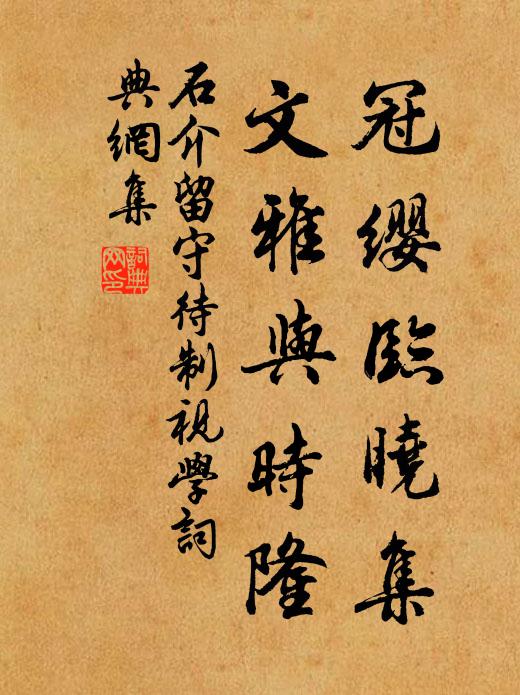 冠纓臨曉集
文雅與時隆
石介留守待制視學詞
典網集
詞典網印